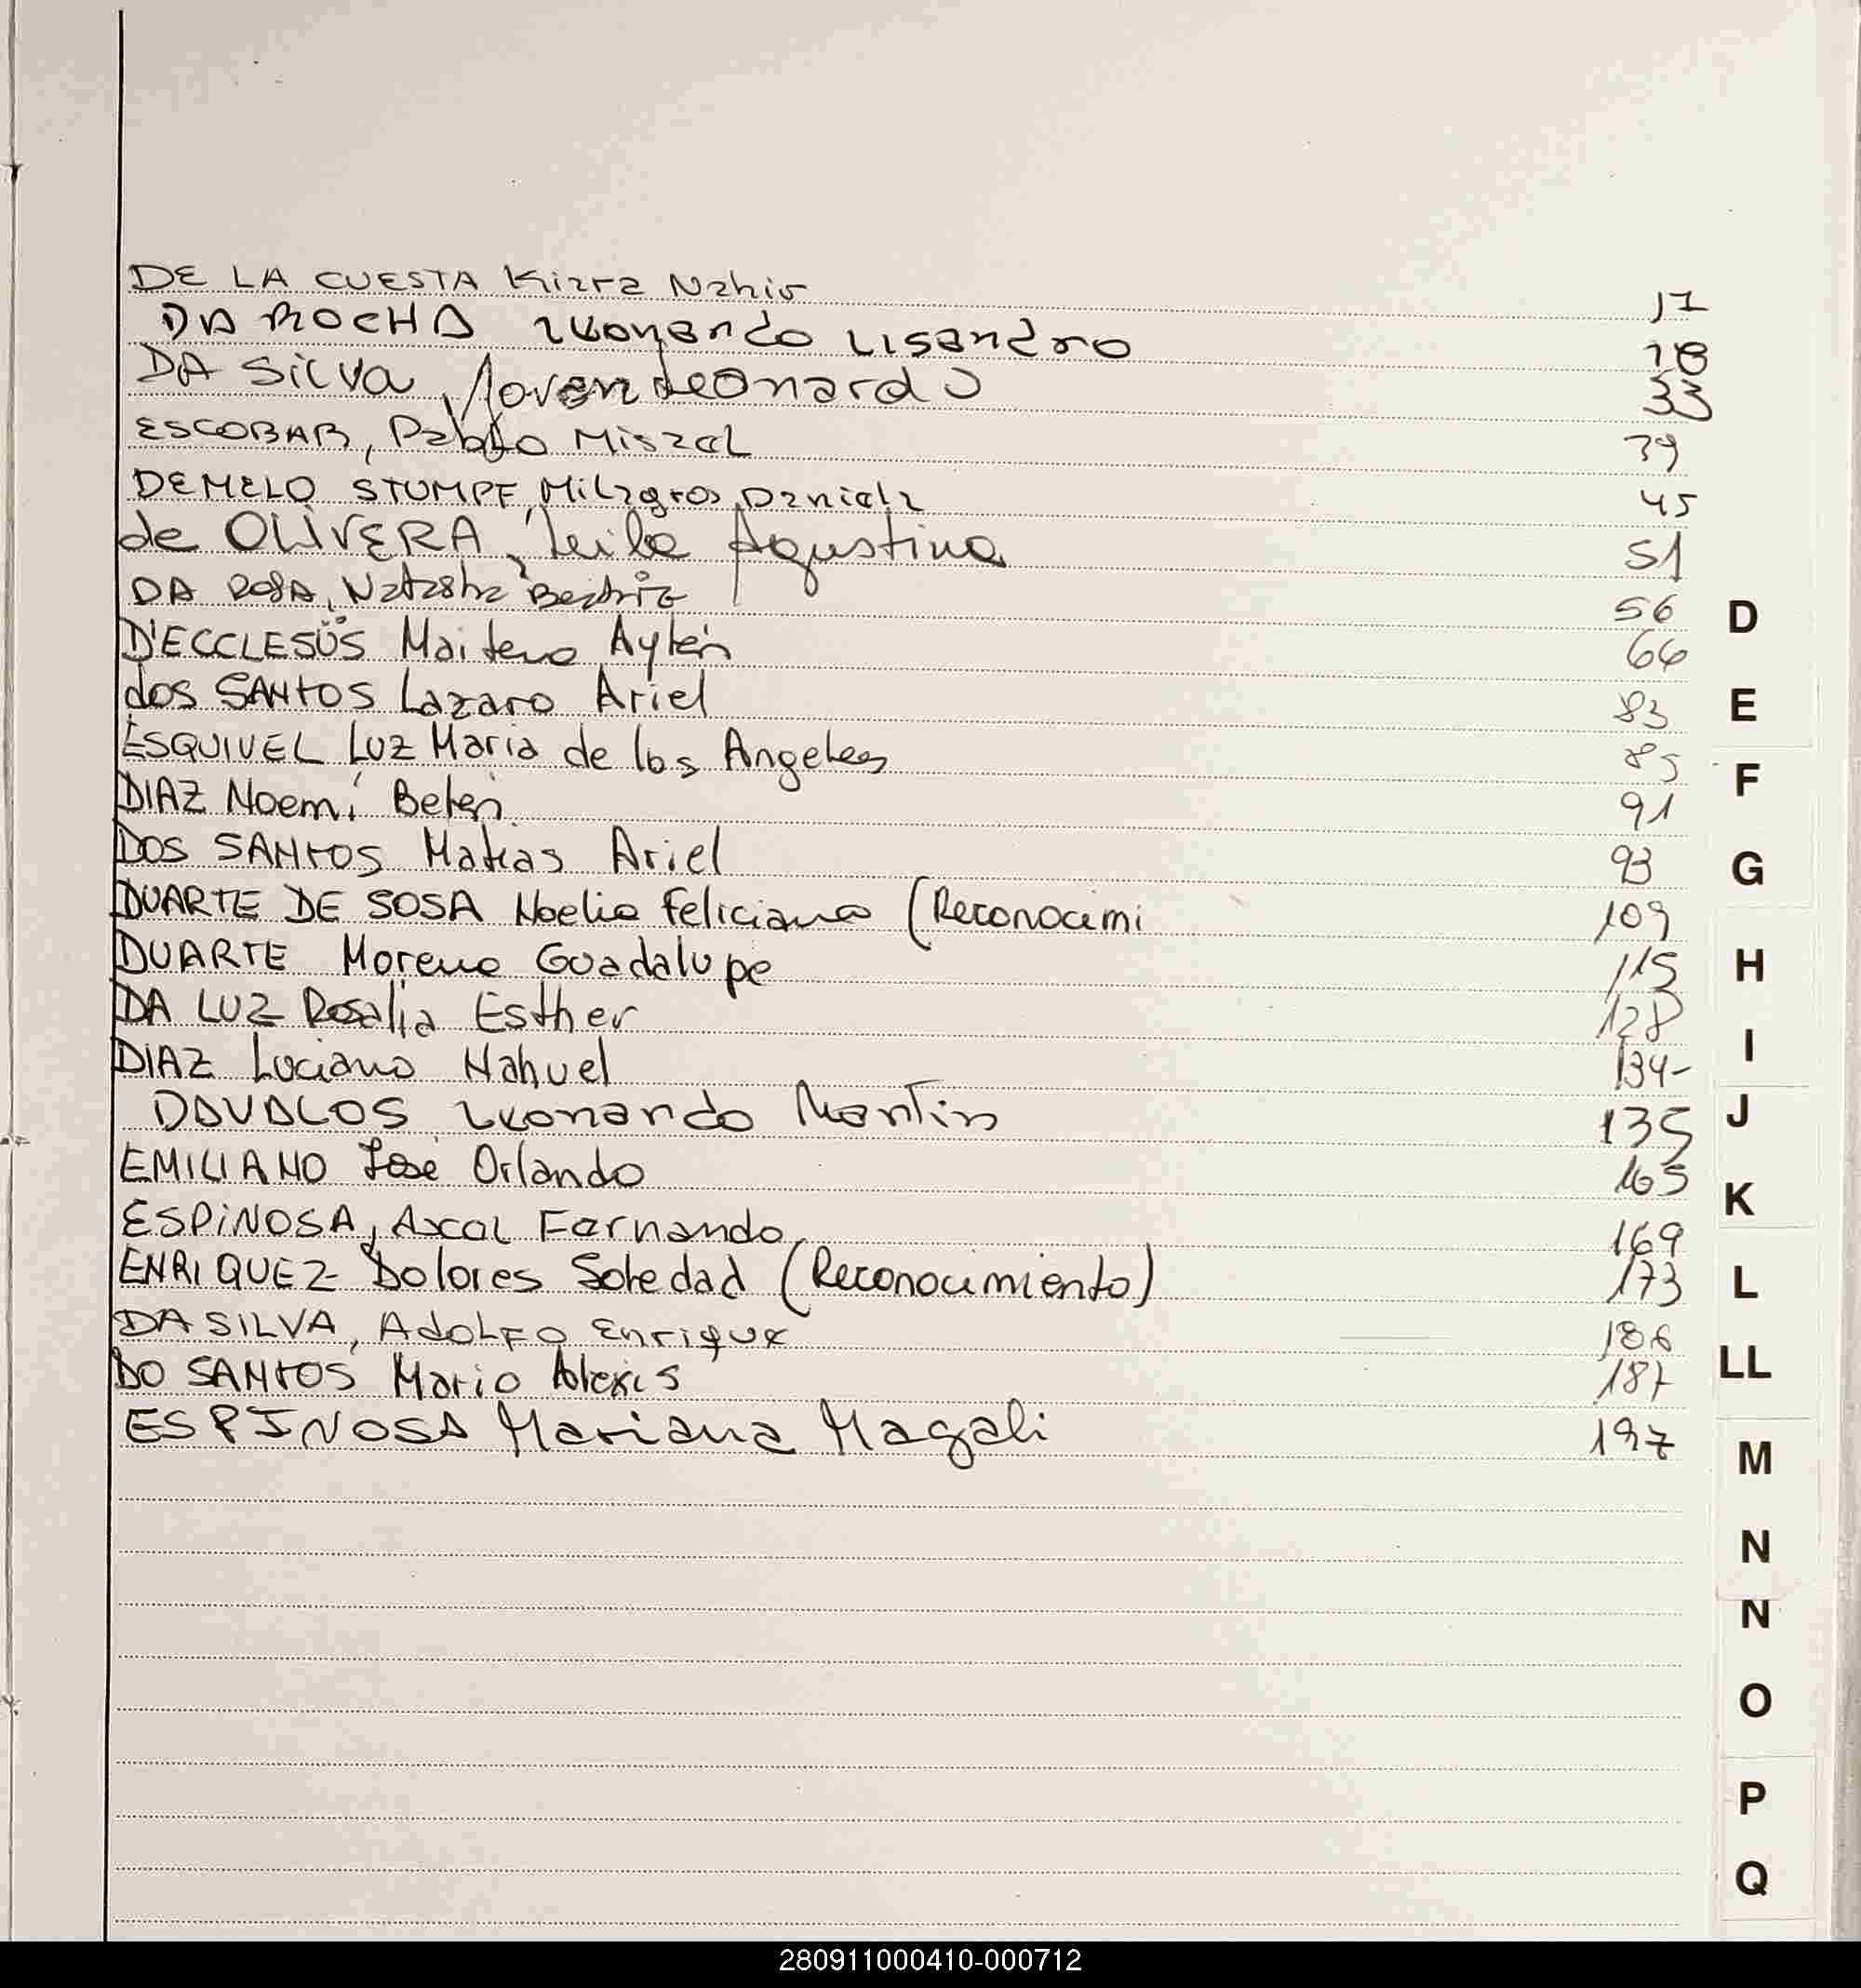 DE LA CUESTA Kiara Nahir 17
DA ROCHA Leonardo Lisandro 18
DA SILVA, Leonardo 33
ESCOBAR, Pablo Misael 39
DEMELO STUMPF, Milagros Daniela 45
de OLIVERA, Leila Agustina 51
DA ROSA, Natasha Beatriz 56
D'ECCLESIIS Maitena Aylén 66
dos SANTOS Lazaro Ariel 83
ESQUIVEL Luz Maria de los Angeles 85
DIAZ Noemí Belén 91
DOS SANTOS Matias Ariel 93
DUARTE DE SOSA Noelia Feliciana (Reconocimi 109
DUARTE Morena Guadalupe 115
DA LUZ Rosalia Esther 128
DIAZ Luciano Nahuel 134-
DAVALOS Leonardo Martin 135
EMILIANO José Orlando 165
ESPINOSA, Axel Fernando 169
ENRIQUEZ Dolores Soledad (Reconocimiento) 173
DA SILVA, Adolfo Enrique 186
DO SANTOS Mario Alexis 187
ESPINOSA Mariana Magali 197
D
E
F
G
H
I
J
K
L
LL
M
N
N
O
P
Q
280911000410-000712